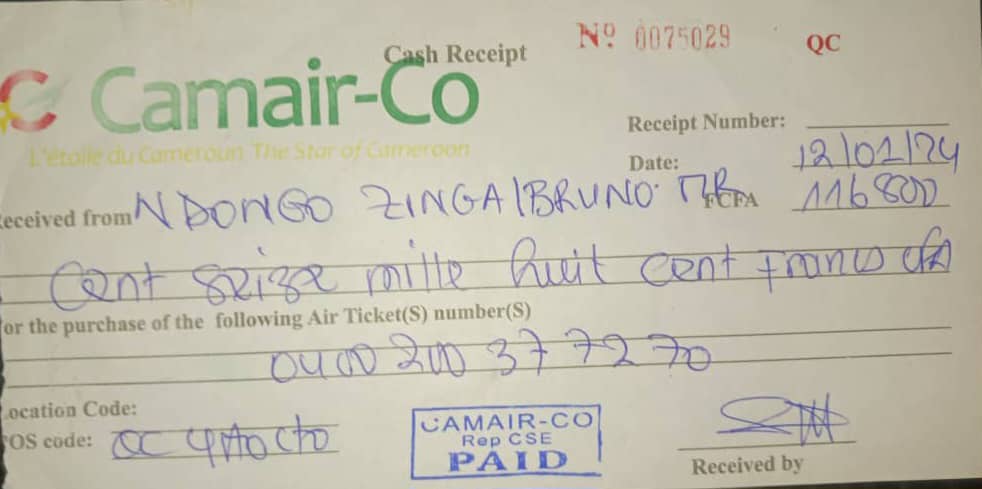 Cash Receipt
Nº 0075029
QC
Camair-Co
L'étoile du Cameroun The Star of Cameroon
Receipt Number:
Date: 12/01/24
Received from NDONGO ZINGA/BRUNO MR FCFA 116800
Cent seize mille huit cent francs cfa
For the purchase of the following Air Ticket(S) number(S)
0400 200 37 72 70
Location Code:
POS code:
CAMAIR-CO
Rep CSE
PAID
Received by